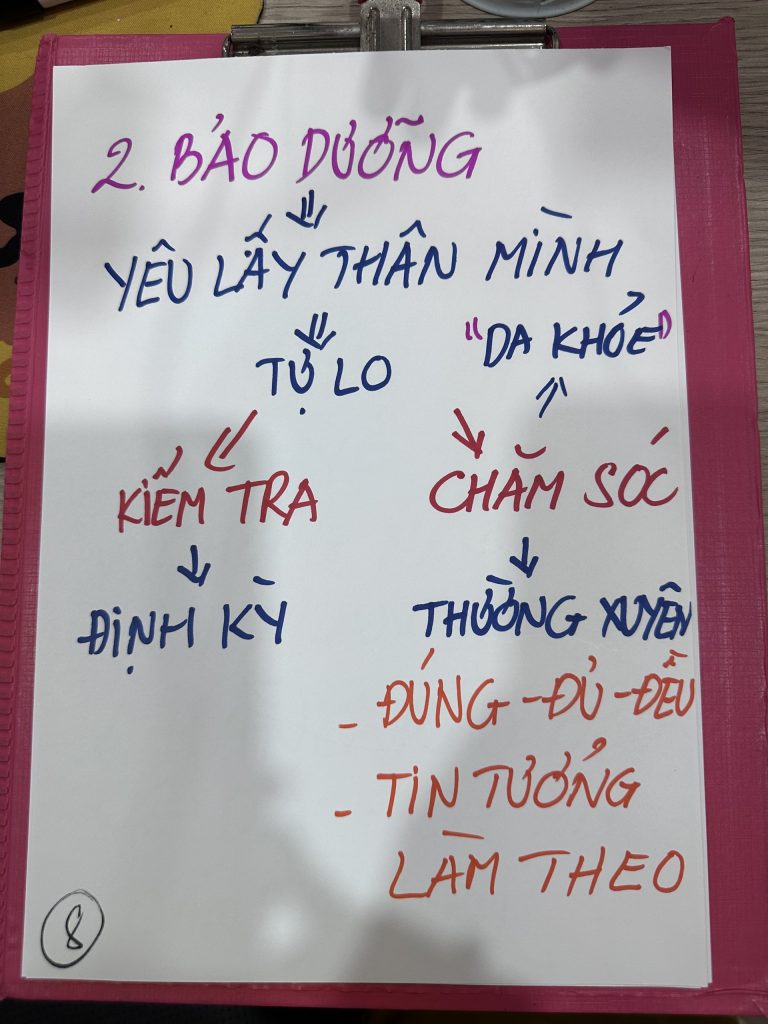 2. BẢO DƯỠNG
YÊU LẤY THÂN MÌNH
TỰ LO
"DA KHỎE"
KIỂM TRA
CHĂM SÓC
ĐỊNH KỲ
THƯỜNG XUYÊN
- ĐÚNG - ĐỦ - ĐỀU
- TIN TƯỞNG
LÀM THEO
8